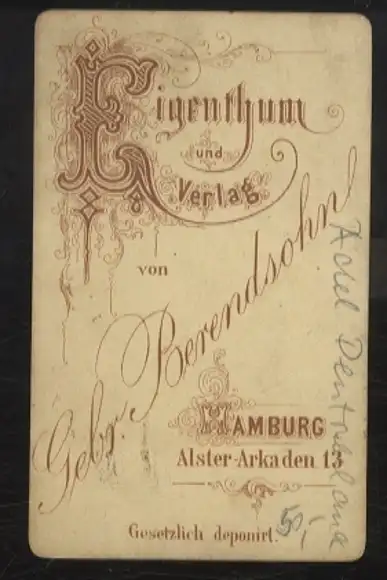 Eigenthum
und
Verlag
von
Gebr. Berendsohn
HAMBURG
Alster-Arkaden 13
Gesetzlich deponirt.
Adel Deutschland